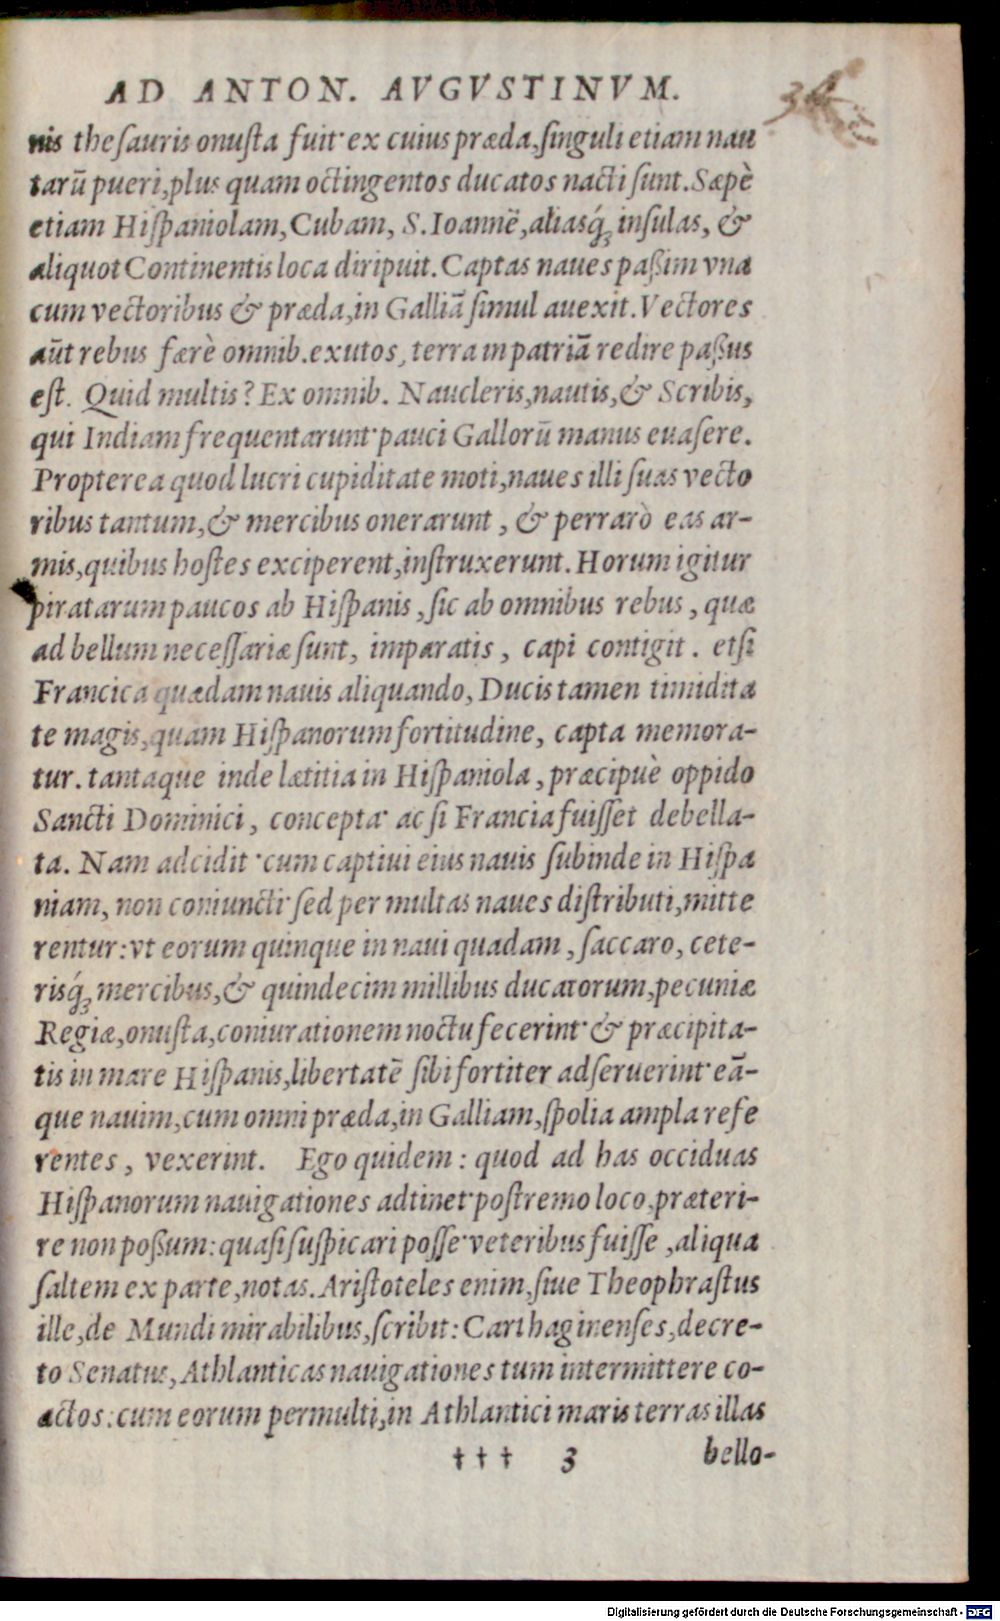 AD ANTON. AVGVSTINVM.
nis theſauris onuſta fuit· ex cuius præda, ſinguli etiam nau
tarũ pueri, plus quam octingentos ducatos nacti ſunt. Sæpè
etiam Hiſpaniolam, Cubam, S. Ioannẽ, aliasq́ꝫ inſulas, &
aliquot Continentis loca diripuit. Captas naues paßim vna
cum vectoribus & præda, in Galliã ſimul auexit. Vectores
aũt rebus færè omnib. exutos, terra in patriã redire paßus
eſt. Quid multis? Ex omnib. Naucleris, nautis, & Scribis,
qui Indiam frequentarunt· pauci Gallorũ manus euaſere.
Propterea quod lucri cupiditate moti, naues illi ſuas vecto
ribus tantum, & mercibus onerarunt, & perrarò eas ar-
mis, quibus hoſtes exciperent, inſtruxerunt. Horum igitur
piratarum paucos ab Hiſpanis, ſic ab omnibus rebus, quæ
ad bellum neceſſariæ ſunt, imparatis, capi contigit. etſi
Francica quædam nauis aliquando, Ducis tamen timidita
te magis, quam Hiſpanorum fortitudine, capta memora-
tur. tantaque inde lætitia in Hiſpaniola, præcipuè oppido
Sancti Dominici, concepta· ac ſi Francia fuiſſet debella-
ta. Nam adcidit· cum captiui eius nauis ſubinde in Hiſpa
niam, non coniuncti· ſed per multas naues diſtributi, mitte
rentur: vt eorum quinque in naui quadam, ſaccaro, cete-
risq́ꝫ mercibus, & quindecim millibus ducatorum, pecuniæ
Regiæ, onuſta, coniurationem noctu fecerint· & præcipita-
tis in mare Hiſpanis, libertatẽ ſibi fortiter adſeruerint· eã-
que nauim, cum omni præda, in Galliam, ſpolia ampla refe
rentes, vexerint. Ego quidem: quod ad has occiduas
Hiſpanorum nauigationes adtinet· poſtremo loco, præteri-
re non poßum: quaſi ſuſpicari poſſe· veteribus fuiſſe, aliqua
ſaltem ex parte, notas. Ariſtoteles enim, ſiue Theophraſtus
ille, de Mundi mirabilibus, ſcribit: Carthaginenſes, decre-
to Senatus, Athlanticas nauigationes tum intermittere co-
actos: cum eorum permulti, in Athlantici maris terras illas
††† 3 bello-
Digitalisierung gefördert durch die Deutsche Forschungsgemeinschaft - DFG